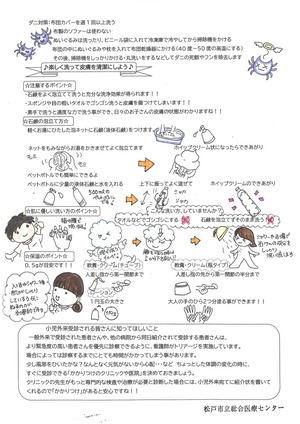 ダニ対策：布団カバーを週１回以上洗う
布製のソファーは使わない
ぬいぐるみは洗ったり、ビニール袋に入れて冷凍庫で冷やしてから掃除機をかける
布団の中にぬいぐるみや枕を入れて布団乾燥器にかける（40度～50度の高温にする）
その後、掃除機をしっかりかける・丸洗いをするなどしてダニの死骸やフンを除去します。
♪楽しく洗って皮膚を清潔にしよう♪
☆注意するポイント☆
・石鹸をよく泡立てて洗うと充分な洗浄効果が得られます！！
・スポンジや目の粗いタオルでゴシゴシ洗うと皮膚を傷つけてしまいます！！
・素手で洗うと適度な力で洗う事ができ、日々のお子さんの皮膚の状態がわかりますね！！
☆石鹸の泡立て方☆
軽くお湯にひたした泡ネットに石鹸（液体石鹸）をつけます
ネットをもみながらお湯をかきまぜて泡立てます
もみもみ
ホイップクリーム状になったらできあがり
ペットボトルでも簡単にできるよ
ペットボトルに少量の液体石鹸と水を入れる
上下に振ってよく混ぜ
ホイップクリームのできあがり
☆肌に優しい洗い方のポイント☆
こんな洗い方、していませんか？
タオルなどでゴシゴシする
石鹸を泡立てずそのまま洗う
☆保湿のポイント☆
0.5gが目安です！！
軟膏・クリーム
人差し指から第一関節まで
軟膏・クリーム（瓶タイプ）
人差し指の先から第一関節の半分まで
ローション
１円玉の大きさ
大人の手のひら２つ分塗る事ができます！！
小児外来受診される皆さんに知ってほしいこと
一般外来で受診された患者さんや、他の病院から同日紹介されて受診する患者さんは、
より緊急度の高い患者さんを優先に診察できるように、看護師がトリアージを実施しています。
場合によっては診察するまでにとても時間がかかってしまう事があります。
少し風邪をひいたかな？なんとなく元気がないから心配…など ちょっとした体調の変化の時に、
すぐに受診できるかかりつけのクリニックや医院を決めておきましょう。
クリニックの先生がもっと専門的な検査や治療が必要と診断した場合には、小児外来宛てに紹介状を書いて
くれるので「かかりつけ」があると安心ですね！！
松戸市立総合医療センター